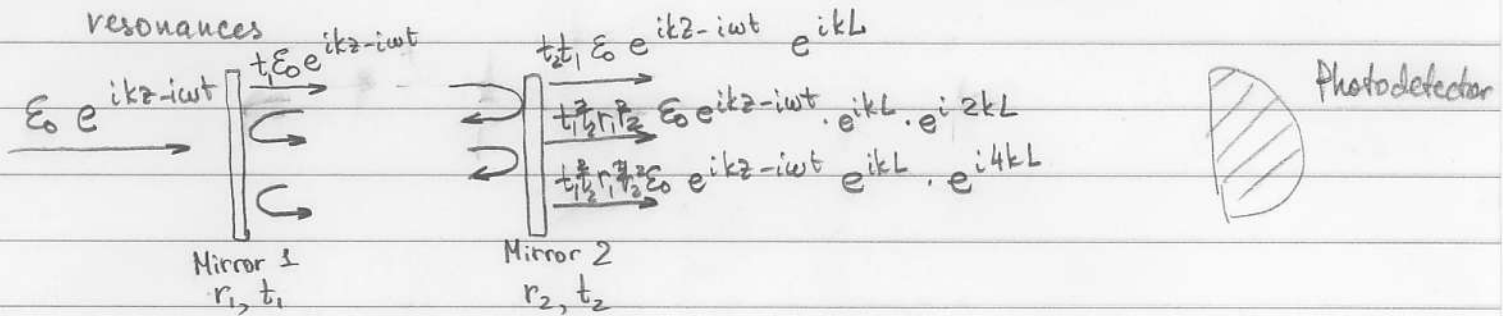 resonances
ε₀ e^{ikz-iωt}
t₁ε₀e^{ikz-iωt}
t₂t₁ ε₀ e^{ikz-iωt} e^{ikL}
ε₀ e^{ikz-iωt} · e^{ikL} · e^{i2kL}
ε₀ e^{ikz-iωt} e^{ikL} · e^{i4kL}
Photodetector
Mirror 1
r₁, t₁
Mirror 2
r₂, t₂